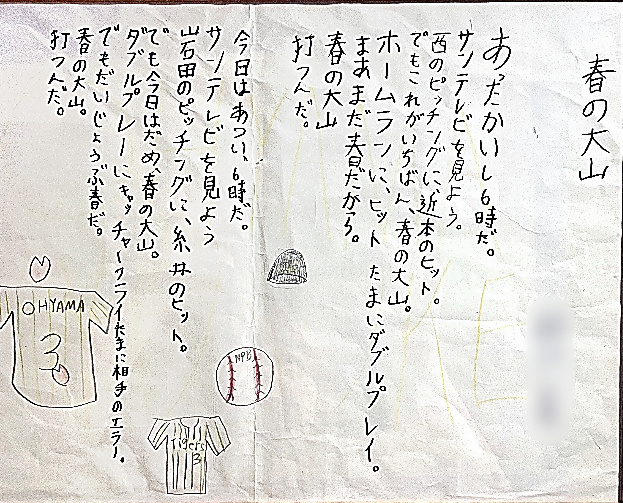 春の大山
あったかいし6時だ。
サンテレビを見よう。
西のピッチングに、近本のヒット。
でもこれがいちばん、春の大山。
ホームランに、ヒット たまにダブルプレイ。
まあまだ春だから。
春の大山
打つんだ。
今日はあつい、6時だ。
サンテレビを見よう
岩田のピッチングに、糸井のヒット。
でも今日はだめ、春の大山。
ダブルプレーにキャッチャーフライたまに相手のエラー。
でもだいじょうぶ春だ。
春の大山。
打つんだ。
NPB
OHYAMA
3
Tigers
3